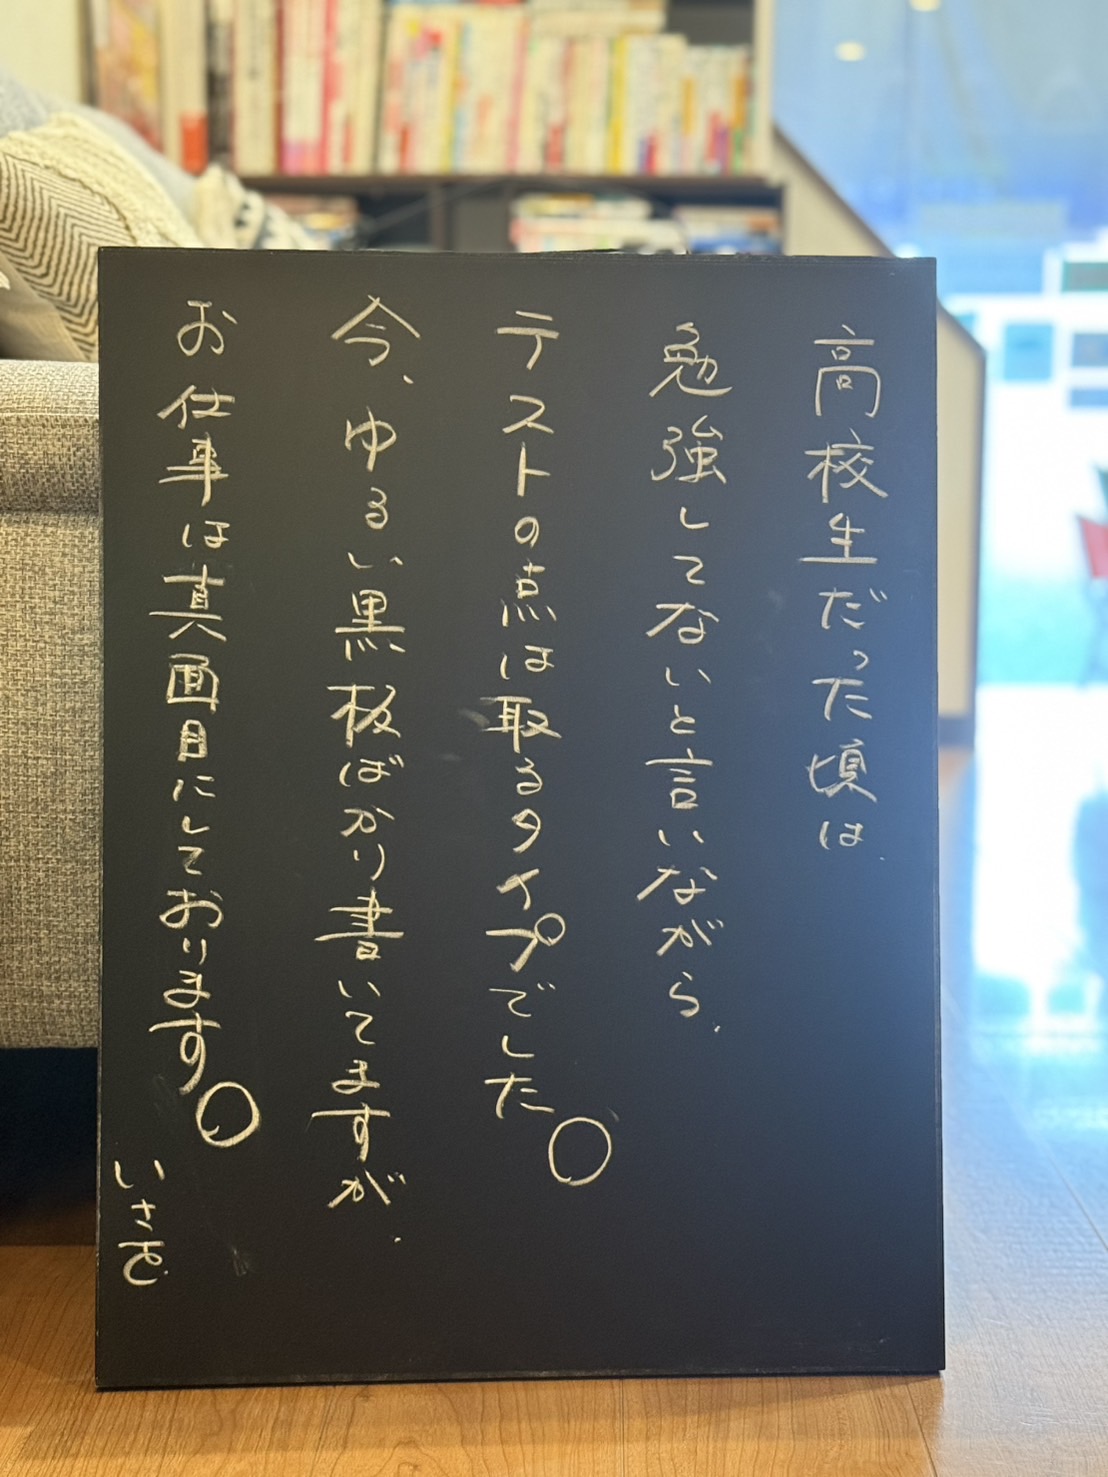 高校生だった頃は、
勉強してないと言いながら、
テストの点は取るタイプでした。
今、ゆるい黒板ばかり書いてますが、
お仕事は真面目にしております。
いさを